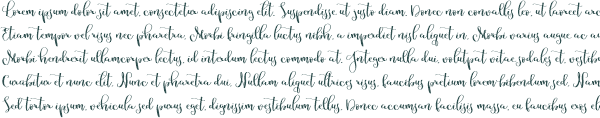 Lorem ipsum dolor sit amet, consectetur adipiscing elit. Suspendisse ut justo diam. Donec non convallis leo, ut laoreet arc
Etiam tempor vel risus nec pharetra. Morbi fringilla luctus nibh, a imperdiet nisl aliquet in. Morbi varius augue ac au
Morbi hendrerit ullamcorper lectus, id interdum lectus commodo at. Integer nulla dui, volutpat vitae sodales et, vestib
Curabitur et nunc elit. Nunc et pharetra dui. Nullam aliquet ultrices risus, faucibus pretium lorem bibendum sed. Nam
Sed tortor ipsum, vehicula sed purus eget, dignissim vestibulum tellus. Donec accumsan facilisis massa, eu faucibus eros d